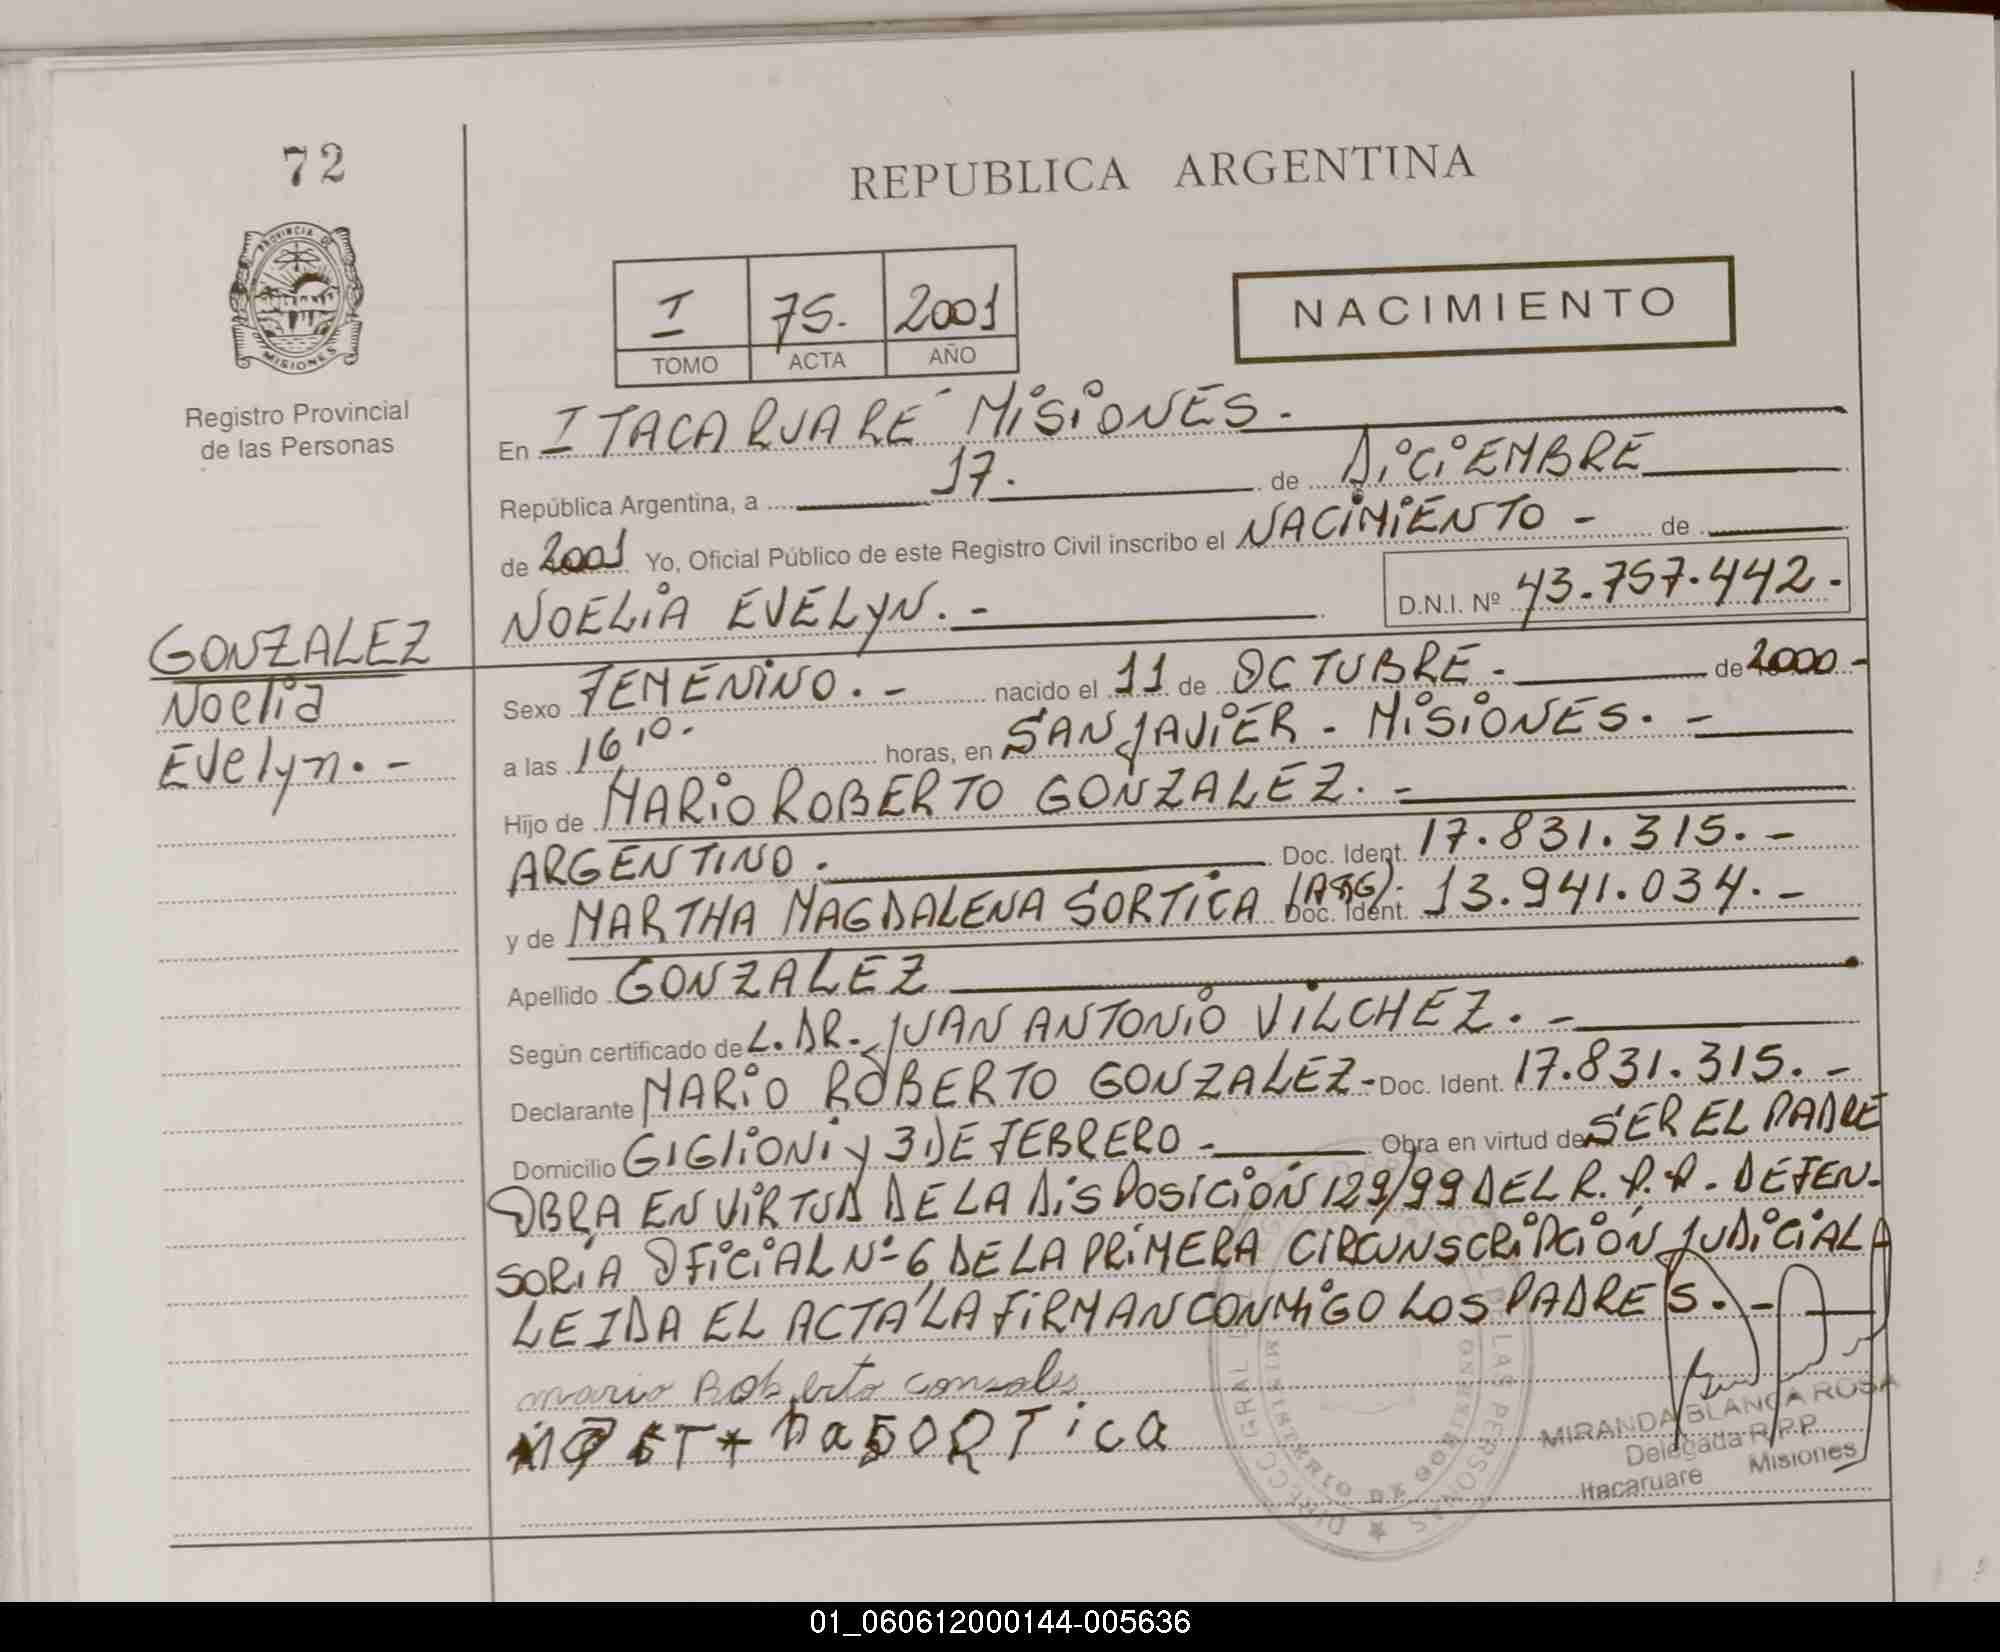 72
REPUBLICA ARGENTINA
PROVINCIA DE
MISIONES
Registro Provincial
de las Personas
I 75. 2001
TOMO ACTA AÑO
NACIMIENTO
En ITACARUARE MISIONES.
República Argentina, a 17. de DICIEMBRE
de 2001 Yo, Oficial Público de este Registro Civil inscribo el NACIMIENTO - de
NOELIA EVELYN. - D.N.I. Nº 43.757.442.-
GONZALEZ
Noelia
Evelyn. -
Sexo FEMENINO. - nacido el 11 de OCTUBRE - de 2000 -
a las 16,10. horas, en SAN JAVIER - MISIONES. -
Hijo de MARIO ROBERTO GONZALEZ. -
ARGENTINO. Doc. Ident. 17.831.315. -
y de MARTHA MAGDALENA SORTICA (ARG). Doc. Ident. 13.941.034. -
Apellido GONZALEZ
Según certificado de L. DR. JUAN ANTONIO VILCHEZ. -
Declarante MARIO ROBERTO GONZALEZ - Doc. Ident. 17.831.315. -
Domicilio GIGLIONI y 3 DE FEBRERO - Obra en virtud de SER EL PADRE
OBRA EN VIRTUD DE LA DISPOSICIÓN 129/99 DEL R.P.P. DEFEN-
SORIA OFICIAL Nº 6 DE LA PRIMERA CIRCUNSCRIPCIÓN JUDICIAL
LEIDA EL ACTA LA FIRMAN CONMIGO LOS PADRES. -
mario Roberto consales
SORTica
MIRANDA BLANCA ROSA
Delegada R.P.P.
Itacaruare Misiones
DIRECC. GRAL. DE LAS PERSONAS
MINISTERIO DE GOBIERNO
01_060612000144-005636